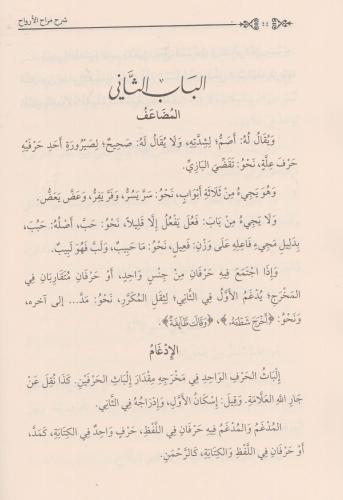 شرح مراح الأرواح
٤٤
البَابُ الثَّانِي
المُضَاعَفُ
وَيُقَالُ لَهُ: أَصَمُّ؛ لِشِدَّتِهِ، وَلَا يُقَالُ لَهُ: صَحِيحٌ؛ لِصَيْرُورَةِ أَحَدِ حَرْفَيْهِ
حَرْفَ عِلَّةٍ، نَحْوُ: تَقَضِّيَ البَازِيِّ.
وَهُوَ يَجِيءُ مِنْ ثَلَاثَةِ أَبْوَابٍ، نَحْوُ: سَرَّ يَسُرُّ، وَفَرَّ يَفِرُّ، وَعَضَّ يَعَضُّ.
وَلَا يَجِيءُ مِنْ بَابِ: فَعُلَ يَفْعُلُ إِلَّا قَلِيلًا، نَحْوُ: حَبَّ، أَصْلُهُ: حَبُبَ،
بِدَلِيلِ مَجِيءِ فَاعِلِهِ عَلَى وَزْنِ: فَعِيلٍ، نَحْوُ: مَا حَبِيبٌ، وَلَبَّ فَهُوَ لَبِيبٌ.
وَإِذَا اجْتَمَعَ فِيهِ حَرْفَانِ مِنْ جِنْسٍ وَاحِدٍ، أَوْ حَرْفَانِ مُتَقَارِبَانِ فِي
المَخْرَجِ؛ يُدْغَمُ الأَوَّلُ فِي الثَّانِي؛ لِثِقَلِ المُكَرَّرِ، نَحْوُ: مَدَّ... إلى آخره،
وَنَحْوُ: ﴿أَخْرَجَ شَطْئَهُ﴾، ﴿وَقَالَت طَّآئِفَةٌ﴾.
الإِدْغَامُ
إِلْبَاثُ الحَرْفِ الوَاحِدِ فِي مَخْرَجِهِ مِقْدَارَ إِلْبَاثِ الحَرْفَيْنِ. كَذَا نُقِلَ عَنْ
جَارِ اللهِ العَلَّامَةِ. وَقِيلَ: إِسْكَانُ الأَوَّلِ، وَإِدْرَاجُهُ فِي الثَّانِي.
المُدْغَمُ وَالمُدْغَمُ فِيهِ حَرْفَانِ فِي اللَّفْظِ، حَرْفٌ وَاحِدٌ فِي الكِتَابَةِ، كَمَدَّ،
أَوْ حَرْفَانِ فِي اللَّفْظِ وَالكِتَابَةِ، كَالرَّحْمَنِ.